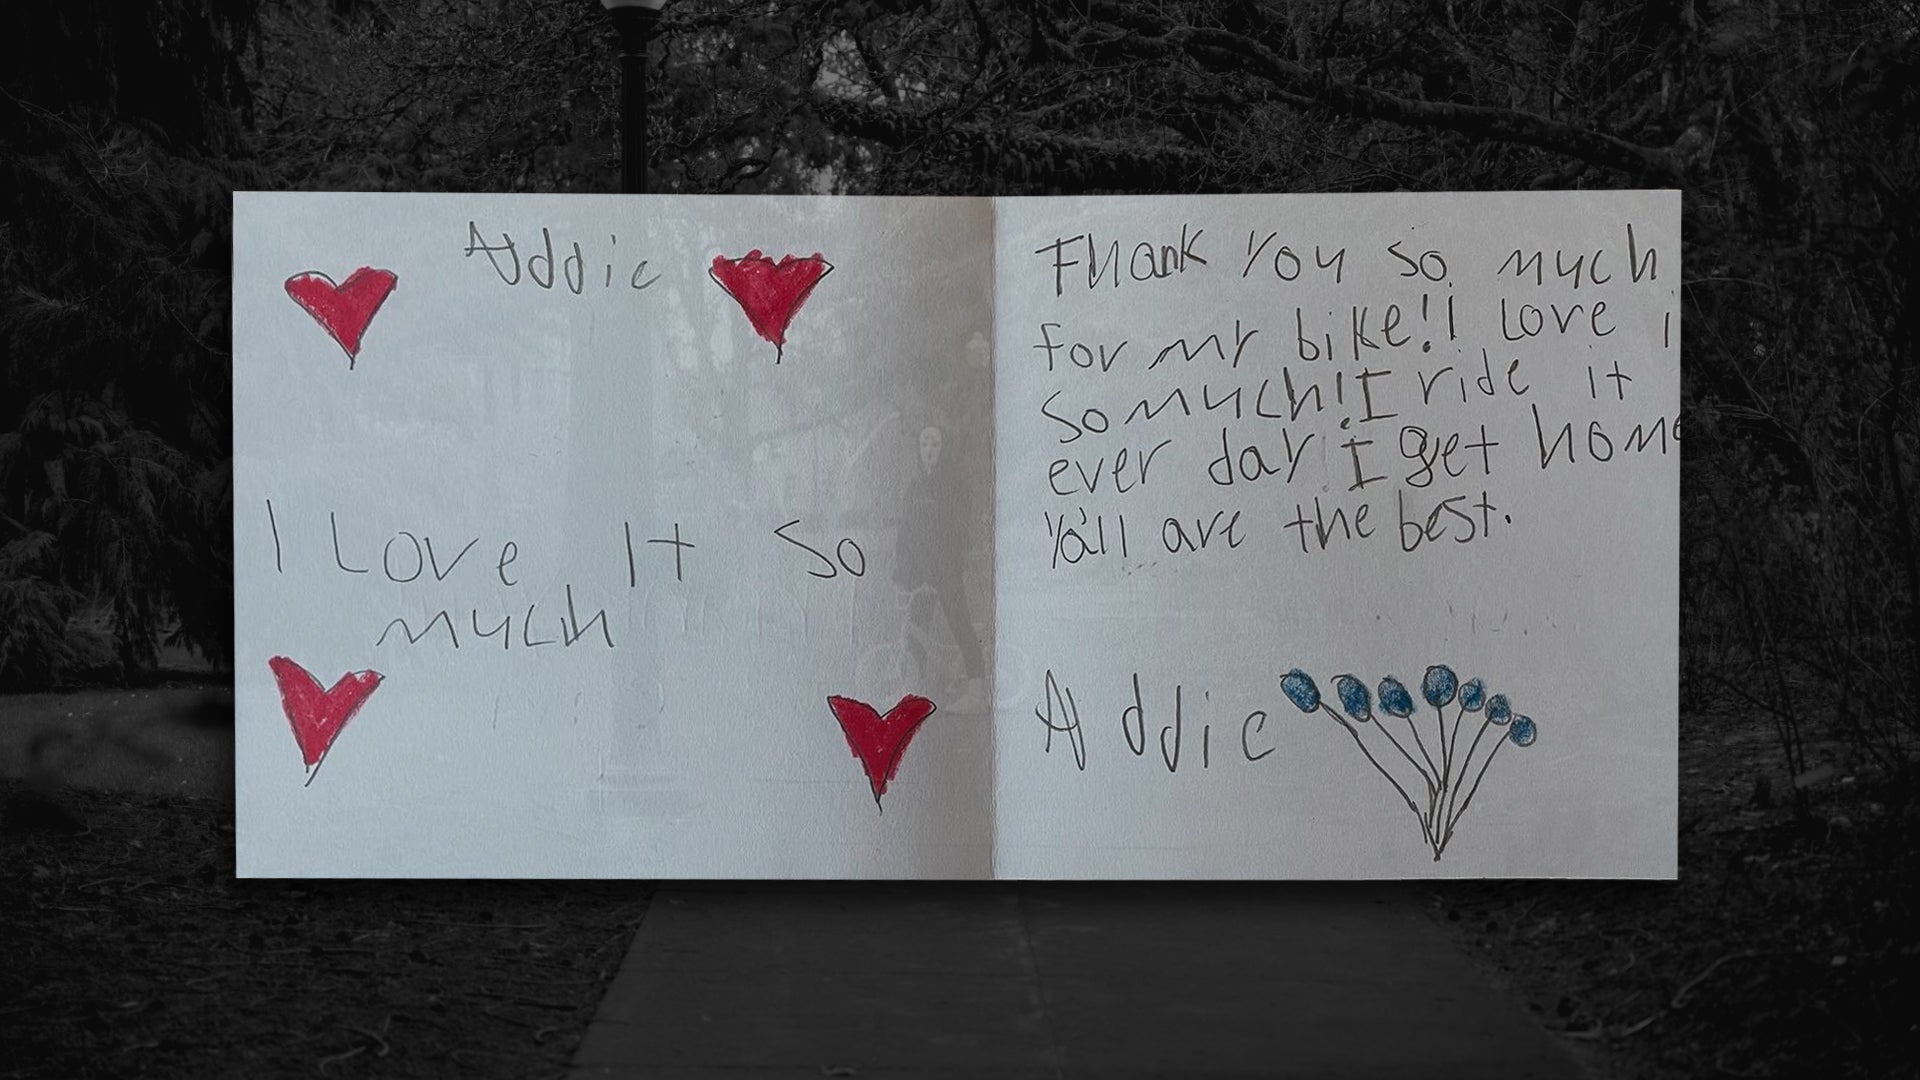 Addie
I Love It So
much
Thank You So much
for my bike!! Love i
So much! I ride it
ever day I get home
Ya'll are the best.
Addie